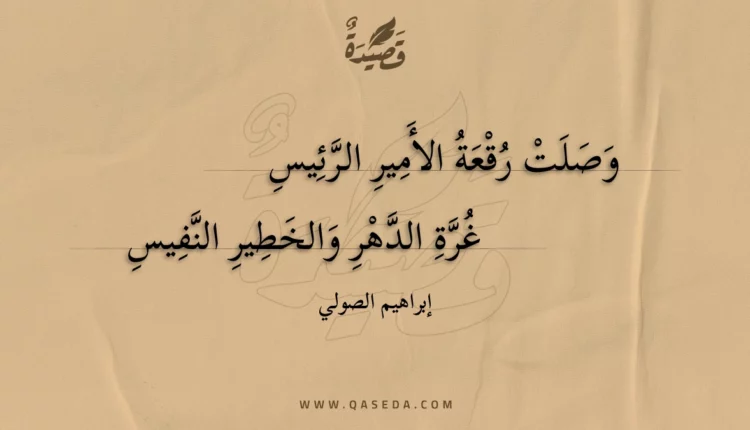 قَصِيدَةٌ
وَصَلَتْ رُقْعَةُ الأَمِيرِ الرَّئِيسِ
غُرَّةِ الدَّهْرِ وَالخَطِيرِ النَّفِيسِ
إبراهيم الصولي
WWW.QASEDA.COM